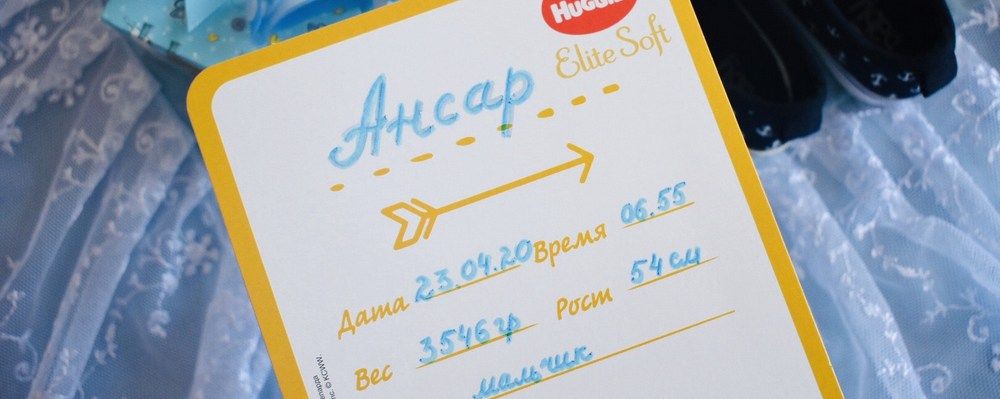 HUGGIES
Elite Soft
Ансар
Дата 23.04.20 Время 06.55
Вес 3546 гр Рост 54 см
мальчик